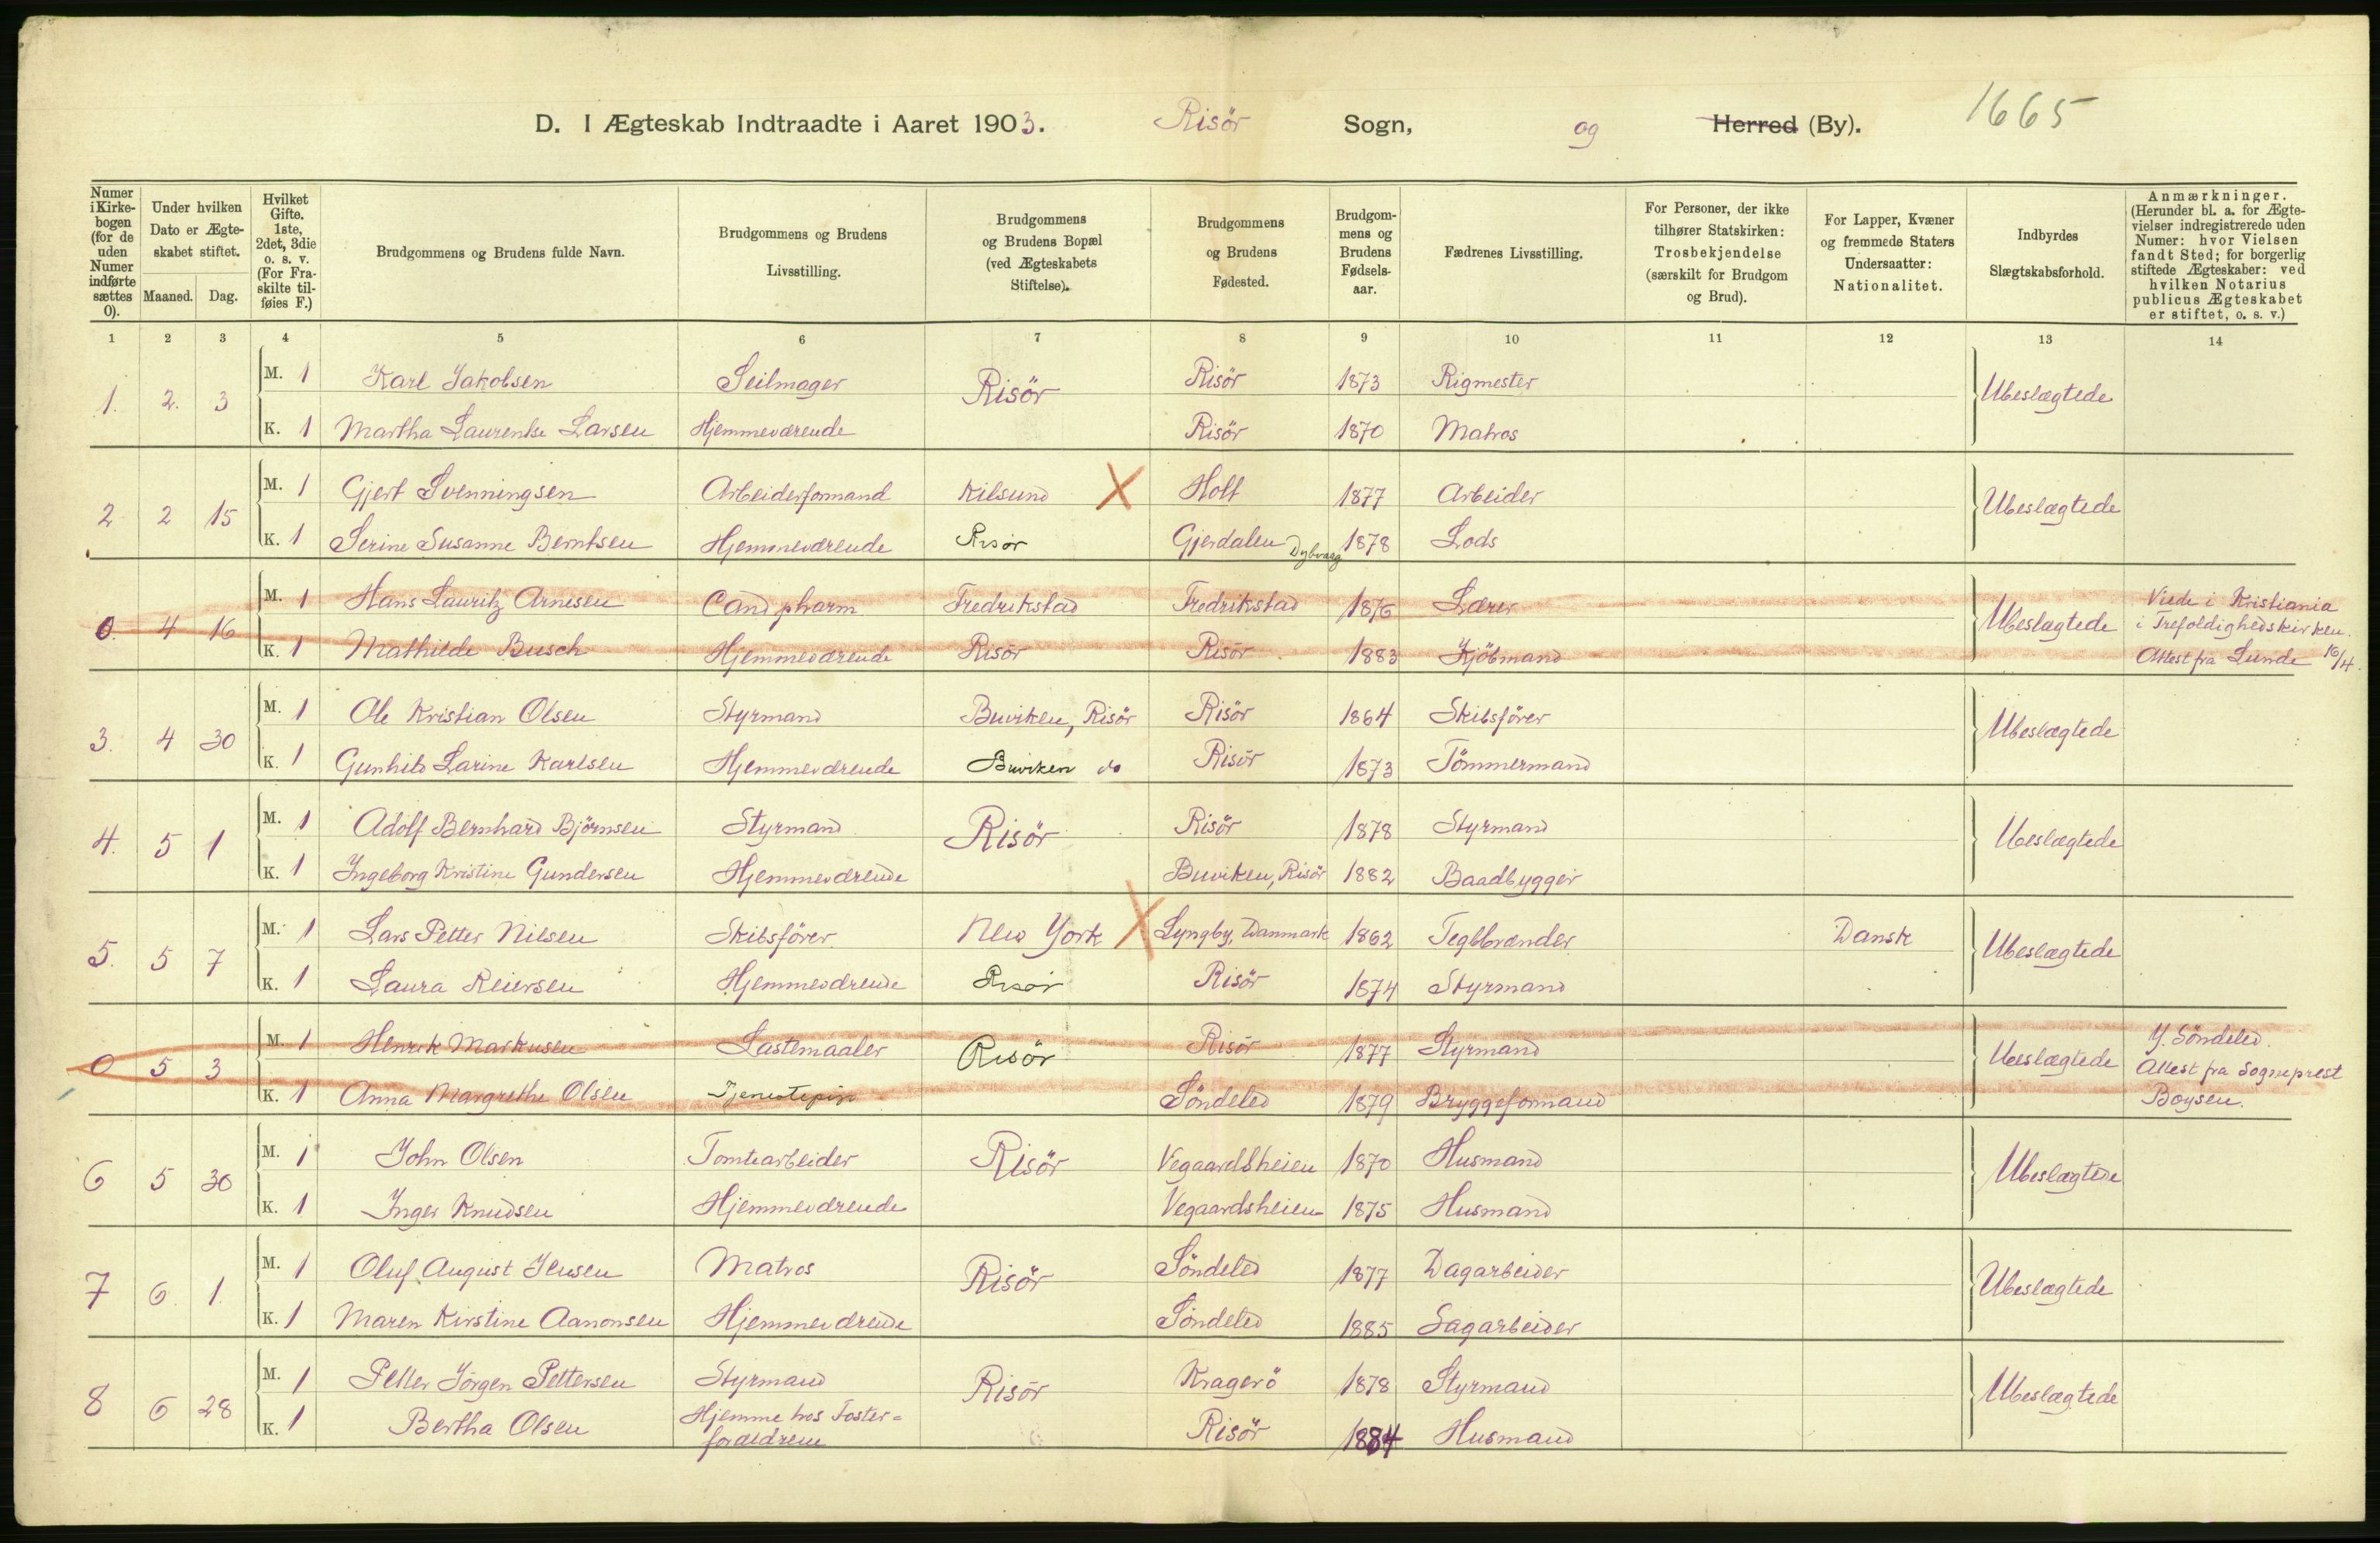 1665
D. I Ægteskab Indtraadte i Aaret 1903. Risör Sogn, og Herred (By).
Numer i Kirkebogen (for de uden Numer indførte sættes 0).
Under hvilken Dato er Ægteskabet stiftet.
Maaned. Dag.
Hvilket Gifte. 1ste, 2det, 3die o. s. v. (For Fraskilte tilføies F.)
Brudgommens og Brudens fulde Navn.
Brudgommens og Brudens Livsstilling.
Brudgommens og Brudens Bopæl (ved Ægteskabets Stiftelse).
Brudgommens og Brudens Fødested.
Brudgommens og Brudens Fødselsaar.
Fædrenes Livsstilling.
For Personer, der ikke tilhører Statskirken: Trosbekjendelse (særskilt for Brudgom og Brud).
For Lapper, Kvæner og fremmede Staters Undersaatter: Nationalitet.
Indbyrdes Slægtskabsforhold.
Anmærkninger. (Herunder bl. a. for Ægtevielser indregistrerede uden Numer: hvor Vielsen fandt Sted; for borgerlig stiftede Ægteskaber: ved hvilken Notarius publicus Ægteskabet er stiftet, o. s. v.)
1 2 3 4 5 6 7 8 9 10 11 12 13 14
1. 2. 3 M. 1 Karl Jakobsen Seilmager Risör Risör 1873 Rigmester Ubeslægtede
K. 1 Martha Laurentse Larsen Hjemmeværende Risör 1870 Matros
2 2 15 M. 1 Gjert Svenningsen Arbeiderformand Kilsund X Holt 1877 Arbeider Ubeslægtede
K. 1 Serine Susanne Berntsen Hjemmeværende Risør Gjerdalen Dybvaag 1878 Lods
0. 4 16 M. 1 Hans Lauritz Arnesen Cand pharm Fredrikstad Fredrikstad 1876 Lærer Ubeslægtede Viede i Kristiania
i Trefoldighedskirken.
K. 1 Mathilde Busch Hjemmeværende Risör Risör 1883 Kjöbmand Attest fra Lunde 16/4.
3. 4 30 M. 1 Ole Kristian Olsen Styrmand Buviken, Risör Risör 1864 Skibsförer Ubeslægtede
K. 1 Gunhild Larine Karlsen Hjemmeværende Buviken do Risör 1873 Tömmermand
4. 5 1 M. 1 Adolf Bernhard Björnsen Styrmand Risör Risör 1878 Styrmand Ubeslægtede
K. 1 Ingeborg Kristine Gundersen Hjemmeværende Buviken, Risör 1882 Baadbygger
5. 5 7 M. 1 Lars Petter Nilsen Skibsförer New York X Lyngby, Danmark 1862 Teglbrænder Dansk Ubeslægtede
K. 1 Laura Reiersen Hjemmeværende Risør Risör 1874 Styrmand
0 5 3 M. 1 Henrik Markusen Lastemaaler Risör Risör 1877 Styrmand Ubeslægtede Y. Söndeled.
Attest fra Sogneprest
K. 1 Anna Margrethe Olsen Tjenestepige Söndeled 1879 Bryggeformand Boysen.
6 5 30 M. 1 John Olsen Tomtearbeider Risör Vegaardsheien 1870 Husmand Ubeslægtede
K. 1 Inger Knudsen Hjemmeværende Vegaardsheien 1875 Husmand
7 6. 1. M. 1 Oluf August Jensen Matros Risör Söndeled 1877 Dagarbeider Ubeslægtede
K. 1 Maren Kirstine Aanonsen Hjemmeværende Söndeled 1885 Sagarbeider
8 6 28 M. 1 Petter Jörgen Pettersen Styrmand Risör Kragerö 1878 Styrmand Ubeslægtede
K. 1 Bertha Olsen Hjemme hos Foster-
forældrene Risör 1884 Husmand